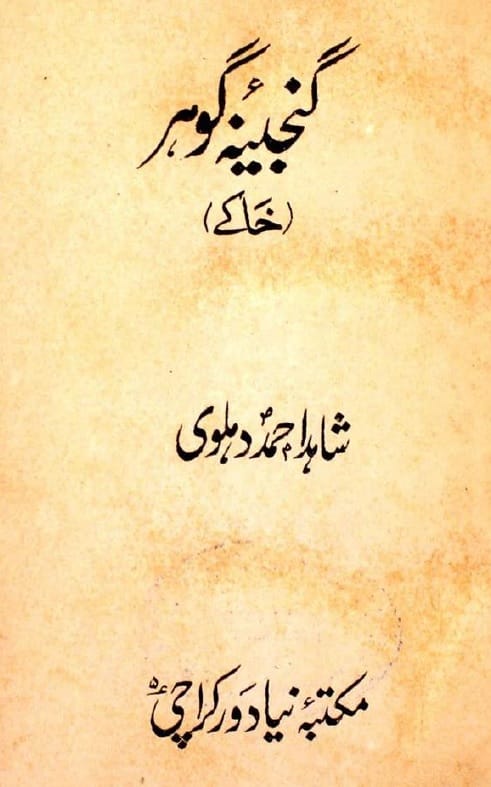 گنجینۂ گوہر
(خاکے)
شاہد احمد دہلوی
مکتبۂ نیا دور کراچی ۵